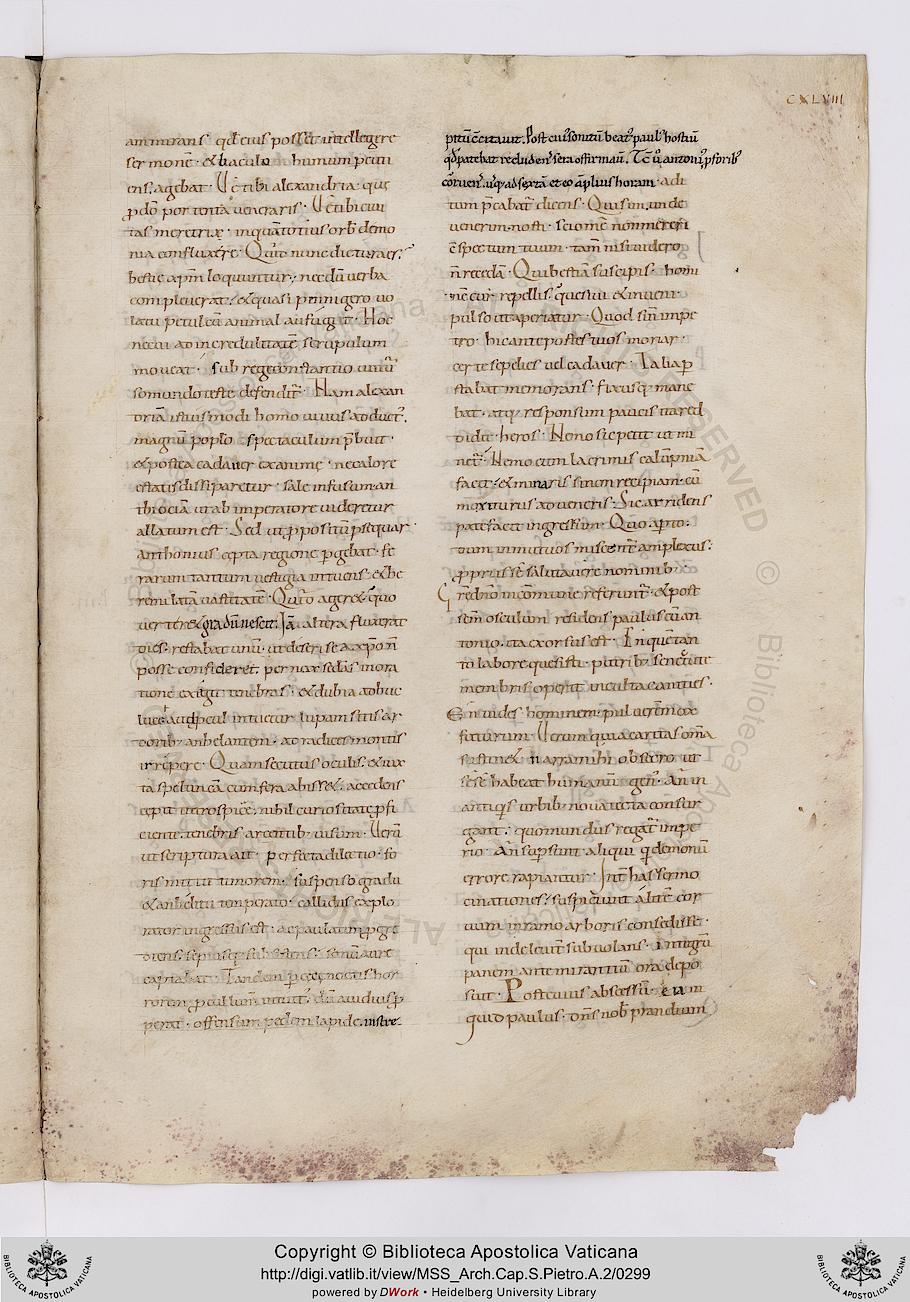 CXLVIII
ammirans quod eius posset intellegere
sermonem et baculo humum percuti
ens agebat Ve tibi alexandria que
pro deo portenta veneraris Ve tibi civi
tas meretrix in quam totius orbis demo
nia confluxere Quid nunc dictura es
bestie xpm loquuntur necdum verba
compleverat et quasi pennigero vo
latu petulcum animal aufugit Hoc
ne cui ad incredulitatem scrupulum
moveat sub rege constantio univer
so mundo teste defenditur Nam alexan
driam istiusmodi homo vivus adductus
magnum populo spectaculum prebuit
et postea cadaver exanime ne calore
estatis dissiparetur sale infusum an
tiochiam ut ab imperatore videretur
allatum est Sed ut propositum persequar
anthonius cepta regione pergebat fe
rarum tantum vestigia intuens et he
remi latam vastitatem Quid ageret quo
verteret gradum nesciret Iam altera fluxerat
dies restabat unum ut deseri se a xpo non
posse confideret pernox secundas in ora
tione exigit tenebras et dubia adhuc
luce haud procul intuetur lupam sitis ar
doribus anhelantem ad radices montis
inrepere Quam secutus oculis et iux
ta speluncam cum fera abisset accedens
cepit introspicere nihil curiositate profi
ciente tenebris arcentibus visum Verum
ut scriptura ait perfecta dilectio fo
ris mittit timorem suspenso gradu
et anhelitu temperato callidus explo
rator ingressus est ac paulatim progre
diens sepiusque subsistens sonum aure
captabat Tandem per cece noctis hor
rorem procul lumen intuitus dum avidius pro
perat offensum pedem lapide in stre
pitum concitavit Post cuius sonitum beatus paulus hostium
quod patebat recludens sera offirmavit Tunc vero antonius pro foribus
corruens usque ad sextam et eo amplius horam adi
tum precabatur dicens Qui sim unde
venerim nosti scio me non mereri
conspectum tuum tamen nisi videro
non recedam Qui bestiam suscipis homi
nem cur repellis quesivi et inveni
pulso ut aperiatur Quod si non impe
tro hic ante postes tuos moriar
certe sepelies vel cadaver Talia per
stabat memorans fixusque mane
bat atque responsum paucis ita red
didit heros Nemo sic petit ut mi
netur Nemo cum lacrimis calumpniam
facit et miraris si non recipiam cum
moriturus adveneris Sic arridens
patefacit ingressum Quo aperto
dum in mutuos miscentur amplexus
propriis se salutavere nominibus
Gredno in commune referuntur et post
sanctum osculum residens paulus cum an
tonio ita exorsus est In quem tan
to labore quesisti putribus senectute
membris operit inculta canities
En vides hominem pulverem mox
futurum Verum quia caritas omnia
sustinet narra mihi obsecro ut
sese habeat humanum genus An in
antiquis urbibus nova tecta consur
gant quo mundus regatur impe
rio An supersunt aliqui qui demonum
errore rapiantur Inter has sermo
cinationes suspiciunt alitem cor
vum in ramo arboris consedisse
qui inde leviter subvolans integrum
panem ante mirantium ora depo
suit Post cuius abscessum en in
quid paulus dns nob prandium
Copyright © Biblioteca Apostolica Vaticana
http://digi.vatlib.it/view/MSS_Arch.Cap.S.Pietro.A.2/0299
powered by DWork • Heidelberg University Library